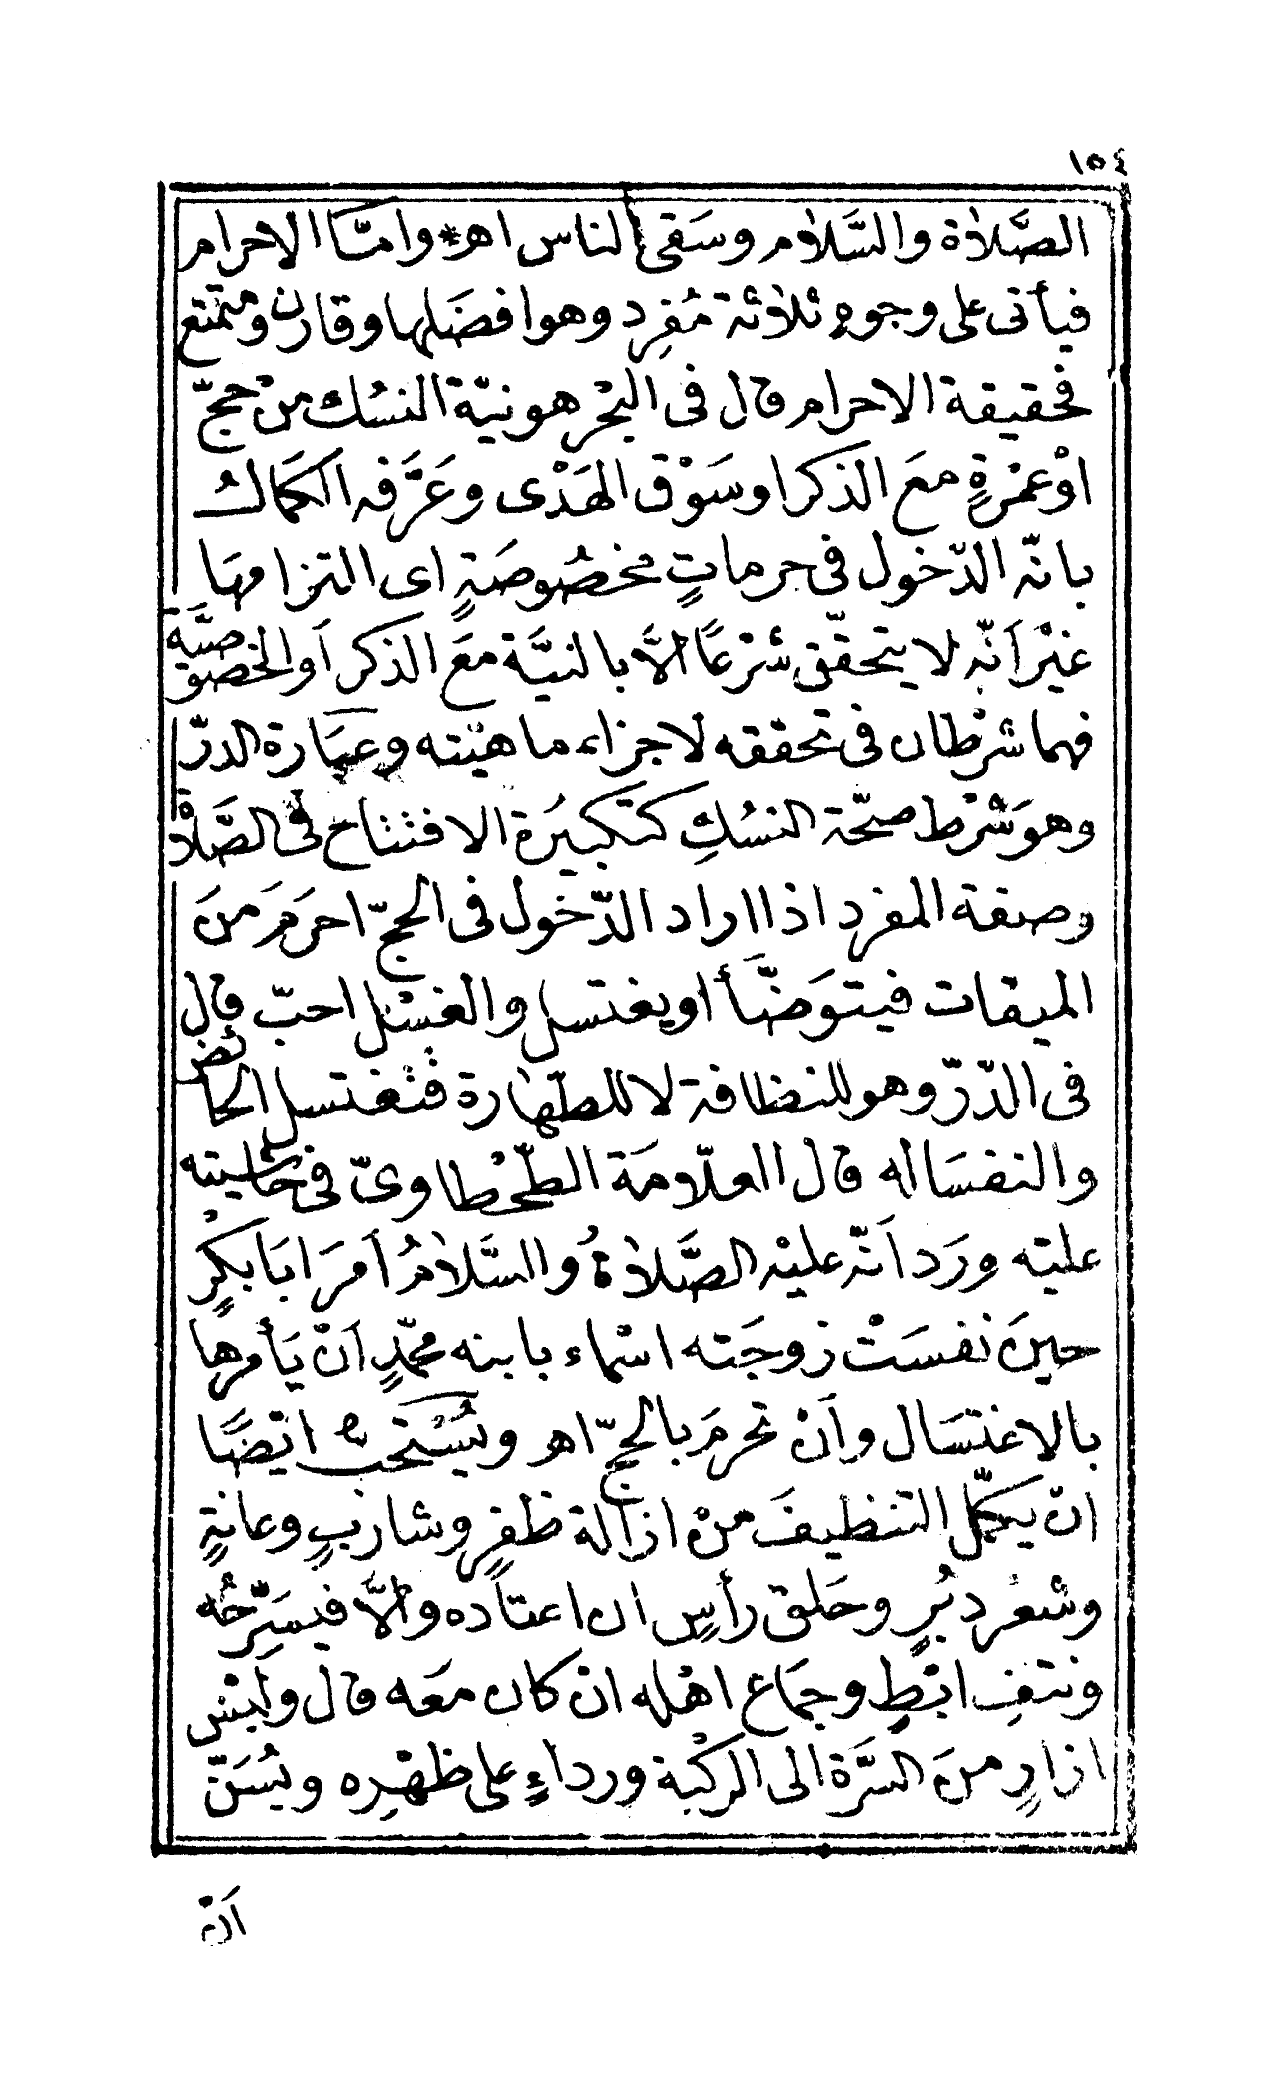 ١٥٤
الصَّلاٰة والسَّلاٰم وسَقى الناس اهـ * وامَّا الاحرام
فيأتى على وجوهٍ ثلاٰثة مُفرِد وهو افضَلها وقارن ومتمتع
فحقيقة الاحرام قال فى البحْر هو نيّة النسُك منْ حجّ
اوْ عمْرةٍ معَ الذكر او سَوْق الهَدْى وعَرَّفه الكمَالُ
بانّه الدّخول فى حرماتٍ مخصُوصَةٍ اى التزامهَا
غيْر اَنّه لا يتحقّق شرْعًا الّا بالنيَّة معَ الذكر اَو الخصُوصيَّة
فهما شرْطان فى تحققه لا جزاء ماهيّته وعبَارة الدرّ
وهوَ شرْط صحّة النسُكِ كتكبيرَة الافتتاح فى الصَّلاٰة
وصفة المفرد اذا اراد الدّخول فى الحجّ احرَمَ منَ
الميقات فيتوَضّأ او يغتسل والغسْل احبّ قال
فى الدّرّ وهو للنظافة لا للطّهارة فتغتسل الحائض
والنفسَا اه قال العلّامَة الطّحْطاوىّ فى حاشيته
عليْه ورَد اَنّه عليْه الصَّلاٰةُ والسَّلاٰمُ اَمَرَ ابَا بكْرٍ
حينَ نفسَتْ زوجَته اسْماء بابنه محمّدٍ اَنْ يَأمرها
بالاغتسَال واَنْ تحرمَ بالحجّ اهـ ويُسْتحَبّ ايْضًا
انْ يكمّل التنظيفَ منْ ازالة ظفرٍ وشاربٍ وعانةٍ
وشعْر دبُرٍ وحَلق رأسٍ ان اعتاده والّا فيسَرّحُه
ونتفِ ابْطٍ وجمَاع اهْله انْ كان معَه قال ولبْس
ازارٍ منَ السَّرَّة الى الركْبة ورداءٍ على ظهْرِه ويُسَنّ
اَنْ